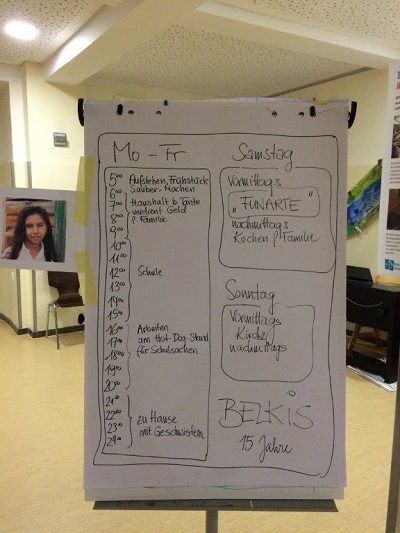 Mo - Fr
5⁰⁰ Aufstehen, Frühstück
6⁰⁰ Sauber-Machen
7⁰⁰ Haushalt b. Tante
8⁰⁰ verdient Geld
9⁰⁰ f. Familie
10⁰⁰
11⁰⁰
12⁰⁰ Schule
13⁰⁰
14⁰⁰
15⁰⁰
16⁰⁰ Arbeiten
17⁰⁰ am Hot-Dog-Stand
18⁰⁰ für Schulsachen
19⁰⁰
20⁰⁰
21⁰⁰
22⁰⁰ zu Hause
23⁰⁰ mit Geschwistern
24⁰⁰
Samstag
vormittags
„FUNARTE"
nachmittags
Kochen f. Familie
Sonntag
Vormittags
Kirche
nachmittags
BELKIS
15 Jahre